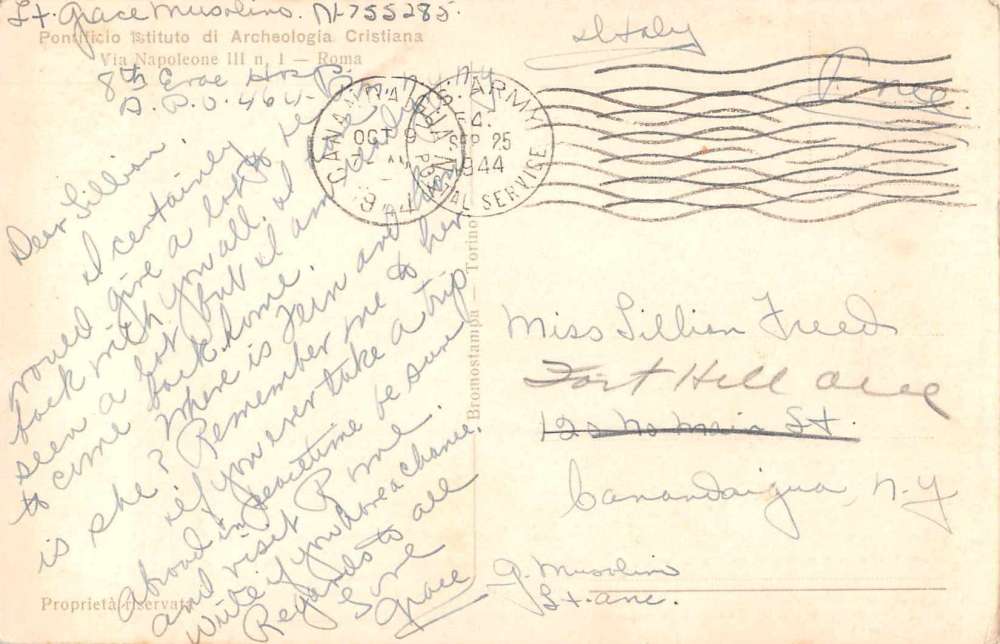 Lt. Grace Musolino. N-755285.
Pontificio Istituto di Archeologia Cristiana
Via Napoleone III n. 1 — Roma
8th Evac Hosp.
A.P.O. 464
N.Y. N.Y.
Italy
Free
CANANDAIGUA
OCT 9
U.S. ARMY
SEP 25
1944
POSTAL SERVICE
Dear Lillian.
I certainly
would give a lot to be
back with you all. I have
seen a lot but I am ready
to come back home.
Where is Jein and how
is she? Remember me to her
if you ever take a trip
abroad in peacetime be sure
and visit Rome
Write if you have a chance.
Regards to all
Love
Grace
Proprietà riservata
Bromostampa — Torino
Miss Lillian Freed
Fort Hill Ave
120 No Main St.
Canandaigua, N-Y
G. Musolino
Lt. anc.